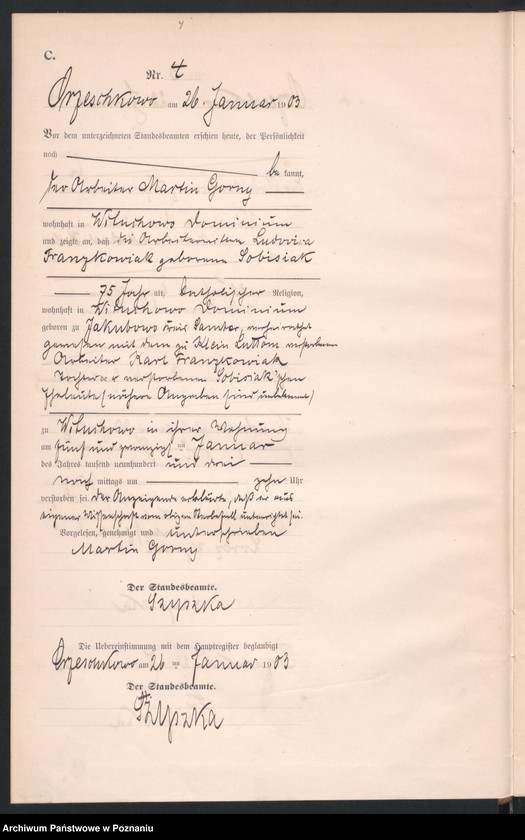 4
C.
Nr. 4
Orzeschkowo am 26. Januar 1903
Vor dem unterzeichneten Standesbeamten erschien heute, der Persönlichkeit
nach
be kannt,
der Arbeiter Martin Gorny
wohnhaft in Wituchowo Dominium
und zeigte an, daß die Arbeiterwitwe Ludovica
Franzkowiak geborene Sobisiak
75 Jahr alt, katholischer Religion,
wohnhaft in Wituchowo Dominium
geboren zu Jakubowo Kreis Samter, verheirathet
gewesen mit dem zu Klein Luttom verstorbenen
Arbeiter Karl Franzkowiak
Tochter der verstorbenen Sobisiak'schen
Eheleute (nähere Angaben sind unbekannt)
zu Wituchowo in ihrer Wohnung
am fünf und zwanzigsten Januar
des Jahres tausend neunhundert und drei
nach mittags um zehn Uhr
verstorben sei. Der Anzeigende erklärte, daß er aus
eigener Wissenschaft von obigem Sterbefall unterrichtet sei.
Vorgelesen, genehmigt und unterschrieben
Martin Gorny
Der Standesbeamte.
Die Uebereinstimmung mit dem Hauptregister beglaubigt
Orzeschkowo am 26 ten Januar 1903
Der Standesbeamte.
Archiwum Państwowe w Poznaniu